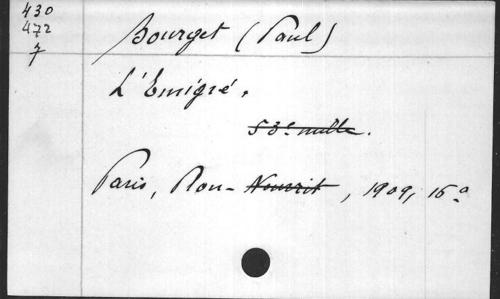 430
472
7
Bourget (Paul)
L'Emigré.
53e mille.
Paris, Plon-Nourrit, 1909, 16°